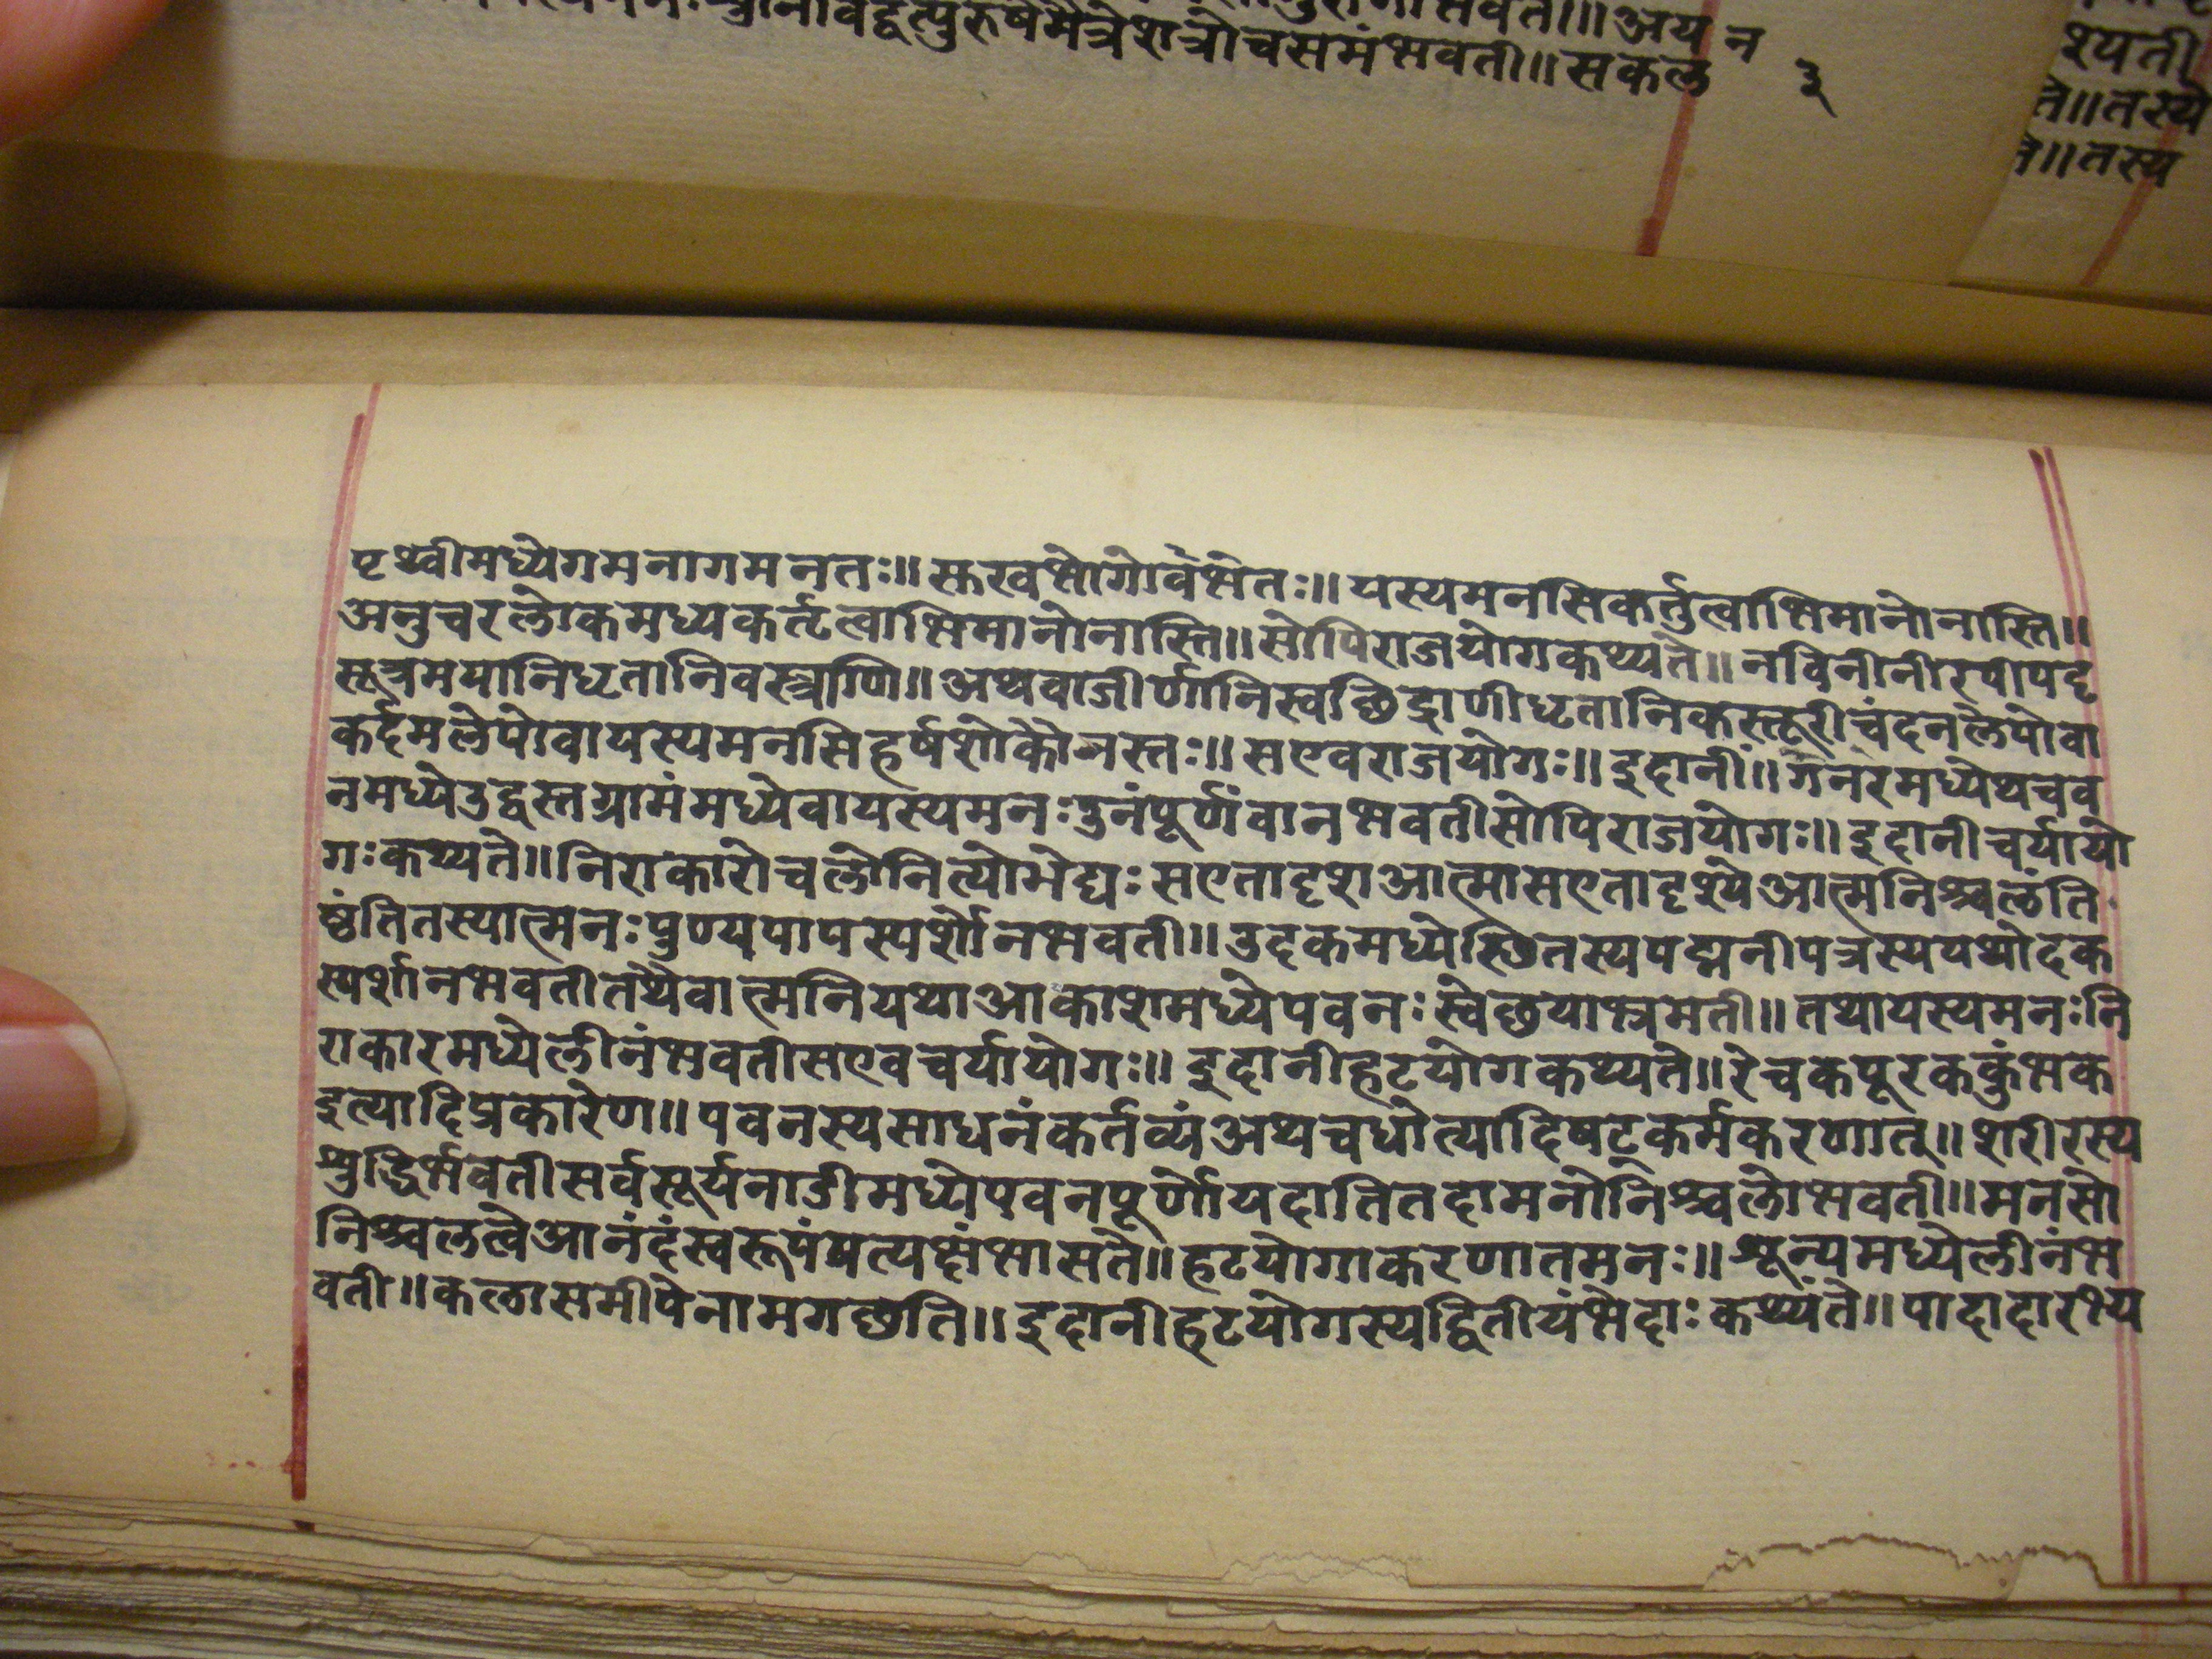 वद्वत्पुरुषेमैत्रेशत्रौचसमंभवती॥सकल
न ३
श्यती
ते॥तस्ये
ते॥तस्य
पृथ्वीमध्येगमनागमनतः॥ यस्यमनसिकर्तुत्वाभिमानोनास्ति॥
अनुचरलोकमध्यकर्तृत्वाभिमानोनास्ति॥सोपिराजयोगकथ्यंते॥नविनीनीरपीपदृ
सूत्रमयानिधृतानिवस्त्राणि॥अथवाजीर्णानिस्वछिद्राणीधृतानिकस्तूरीचंदनलेपोवा
कर्दमलेपोवायस्यमनसिहर्षशोकौनस्तः॥सएवराजयोगः॥इदानीं॥गनरमध्येथचव
नमध्येउद्वस्तग्रामंमध्येवायस्यमनःउनंपूर्णंवानभवतीसोपिराजयोगः॥इदानीचर्यायो
गःकथ्यते॥निराकारोचलोनित्योभेद्यःसएतादृशआत्मासएतादृश्येआत्मनिश्चलंति
ष्ठंतितस्यात्मनःपुण्यपापस्पर्शौनभवती॥उदकमध्येस्छितस्यपद्मनीपत्रस्ययथोदक
स्पर्शानभवतीतथैवात्मनियथाआकाशमध्येपवनःस्वेछयाभ्रमती॥तथायस्यमनःनि
राकारमध्येलीनंभवतीसएवचर्यायोगः॥इदानीहटयोगकथ्यते॥रेचकपूरककुंभक
इत्यादिप्रकारेण॥पवनस्यसाधनंकर्तव्यंअथचधौत्यादिषट्कर्मकरणात्॥शरीरस्य
शुद्धिर्भवतीसर्वसूर्यनाडीमध्येपवनपूर्णोयदातितदामनोनिश्चलोभवती॥मनसो
निश्चलत्वेआनंदंस्वरूपंप्रत्यक्षंभासते॥हटयोगाकरणातमनः॥शून्यमध्येलीनंभ
वती॥कलासमीपेनामगछति॥इदानीहटयोगस्यद्वितीयंभेदाःकथ्यंते॥पादादारभ्य